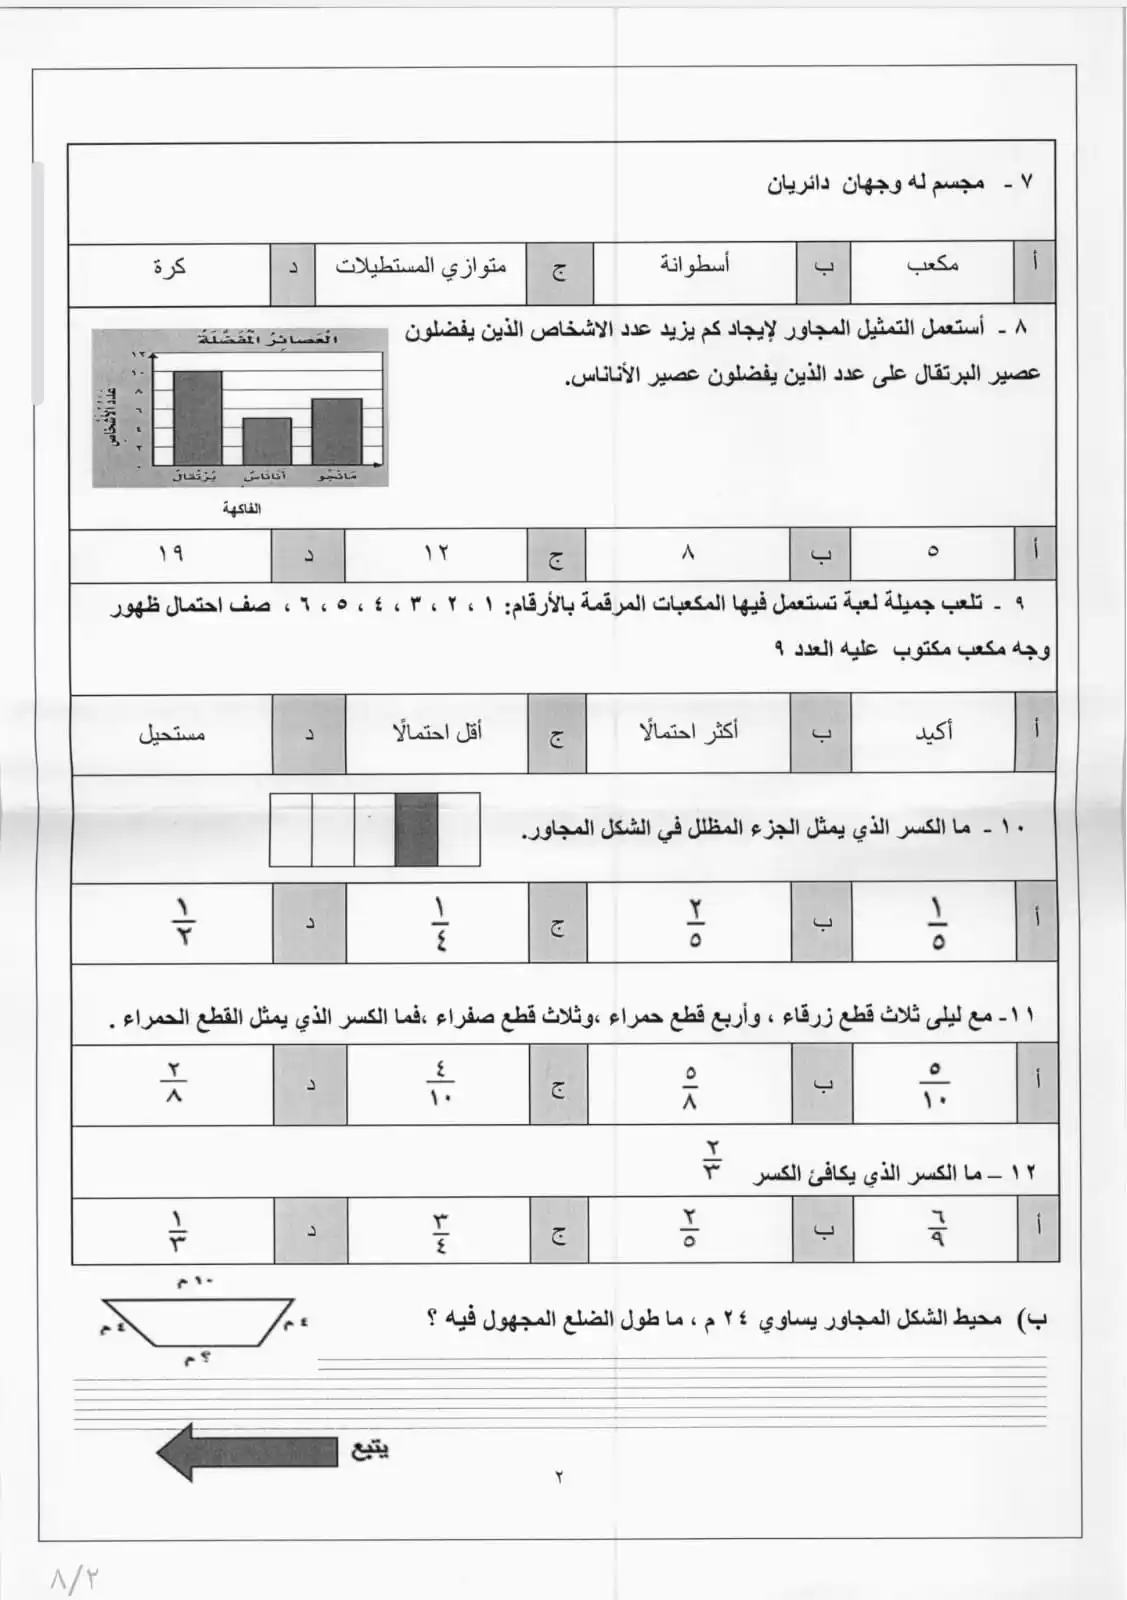 ٧ - مجسم له وجهان دائريان
أ مكعب ب أسطوانة ج متوازي المستطيلات د كرة
٨ - أستعمل التمثيل المجاور لإيجاد كم يزيد عدد الاشخاص الذين يفضلون
عصير البرتقال على عدد الذين يفضلون عصير الأناناس.
العصائر المفضلة
١٢
١٠
عدد الأشخاص
برتقال أناناس مانجو
الفاكهة
أ ٥ ب ٨ ج ١٢ د ١٩
٩ - تلعب جميلة لعبة تستعمل فيها المكعبات المرقمة بالأرقام: ١ ، ٢ ، ٣ ، ٤ ، ٥ ، ٦ ، صف احتمال ظهور
وجه مكعب مكتوب عليه العدد ٩
أ أكيد ب أكثر احتمالًا ج أقل احتمالًا د مستحيل
١٠ - ما الكسر الذي يمثل الجزء المظلل في الشكل المجاور.
أ ١/٥ ب ٢/٥ ج ١/٤ د ١/٢
١١- مع ليلى ثلاث قطع زرقاء ، وأربع قطع حمراء ،وثلاث قطع صفراء ،فما الكسر الذي يمثل القطع الحمراء .
أ ٥/١٠ ب ٥/٨ ج ٤/١٠ د ٢/٨
١٢ – ما الكسر الذي يكافئ الكسر ٢/٣
أ ٦/٩ ب ٢/٥ ج ٣/٤ د ١/٣
ب) محيط الشكل المجاور يساوي ٢٤ م ، ما طول الضلع المجهول فيه ؟
١٠ م
٤ م
٤ م
؟ م
يتبع
٢
٨/٢